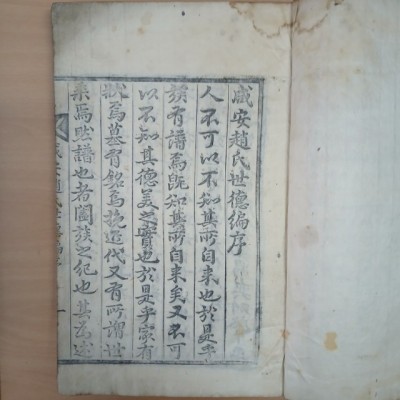 咸安趙氏世德編序
人不可以不知其所自来也於是乎
族有譜焉旣知其所自来矣又不可
以不知其德美之實也於是乎家有
狀焉墓有銘焉挽近代又有所謂世
業焉然譜也者闔族之紀也其為述
咸安趙氏世德編序